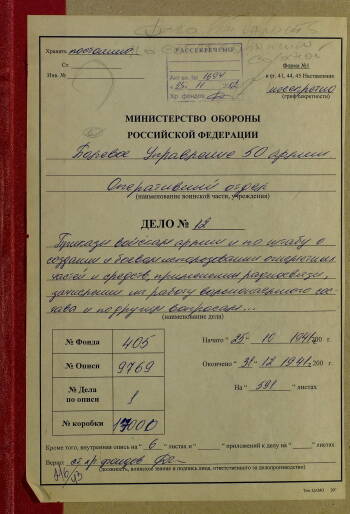 Хранить постоянно
Ст
Инв. №
РАССЕКРЕЧЕНО
Акт вх. № 1694
25 11
Хр. фондов
Форма №1
к ст. 41, 44, 45 Наставления
несекретно
(гриф секретности)
МИНИСТЕРСТВО ОБОРОНЫ
РОССИЙСКОЙ ФЕДЕРАЦИИ
Полевое Управление 50 армии
Оперативный отдел
(наименование воинской части, учреждения)
ДЕЛО № 12
Приказы войскам армии и по штабу о
создании и боевом использовании
частей и средств, применении радиосвязи,
зачислении на работу вольнонаемного сос-
тава и по другим вопросам...
(наименование дела)
№ Фонда 405
№ Описи 9769
№ Дела по описи 1
№ коробки 17000
Начато "25" 10 1941 200 г.
Окончено "31" 12 1941 200 г.
На "591" листах
Кроме того, внутренняя опись на " 6 " листах и " " приложений к делу на " " листах
Верно: ст. хр. фондов
(должность, воинское звание и подпись лица, ответственного за делопроизводство)
Тип. ЦАМО